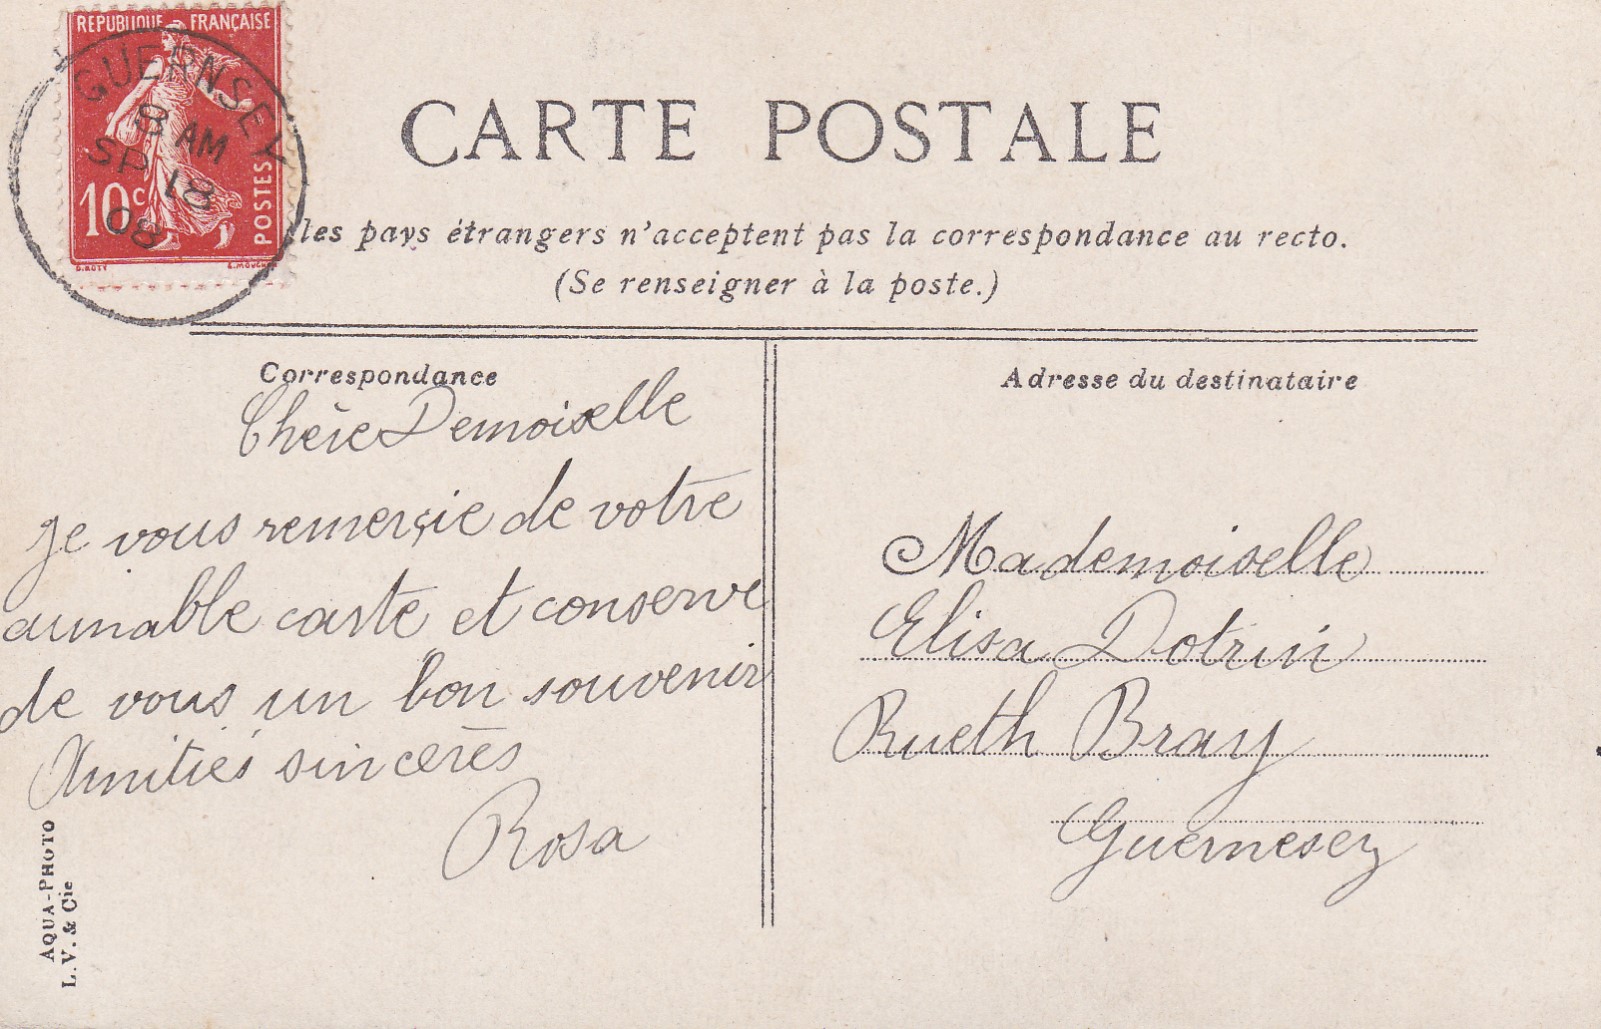 REPUBLIQUE FRANÇAISE
10c POSTES
O.ROTY E.MOUCHON
GUERNSEY
8 AM
SP 18
08
CARTE POSTALE
les pays étrangers n'acceptent pas la correspondance au recto.
(Se renseigner à la poste.)
Correspondance
Chère Demoiselle
Je vous remerçie de votre
aimable carte et conserve
de vous un bon souvenir
Amitiés sincères
Rosa
AQUA-PHOTO
L.V. & Cie
Adresse du destinataire
Mademoiselle
Elisa Dotrin
Rueth Bray
Guernesey